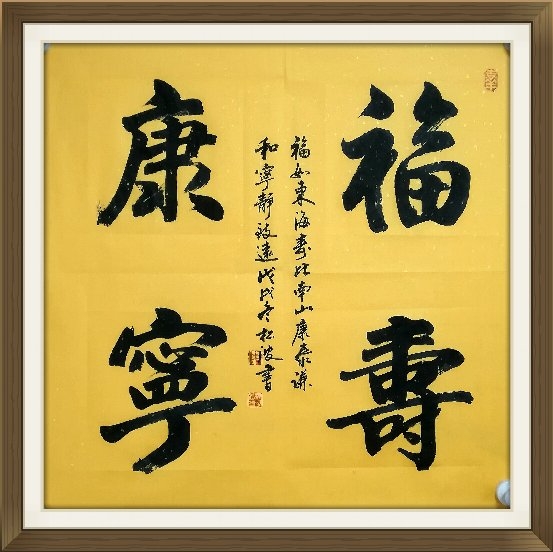 福壽
康寧
福如東海壽比南山康泰謙
和寧靜致遠戊戌冬松波書